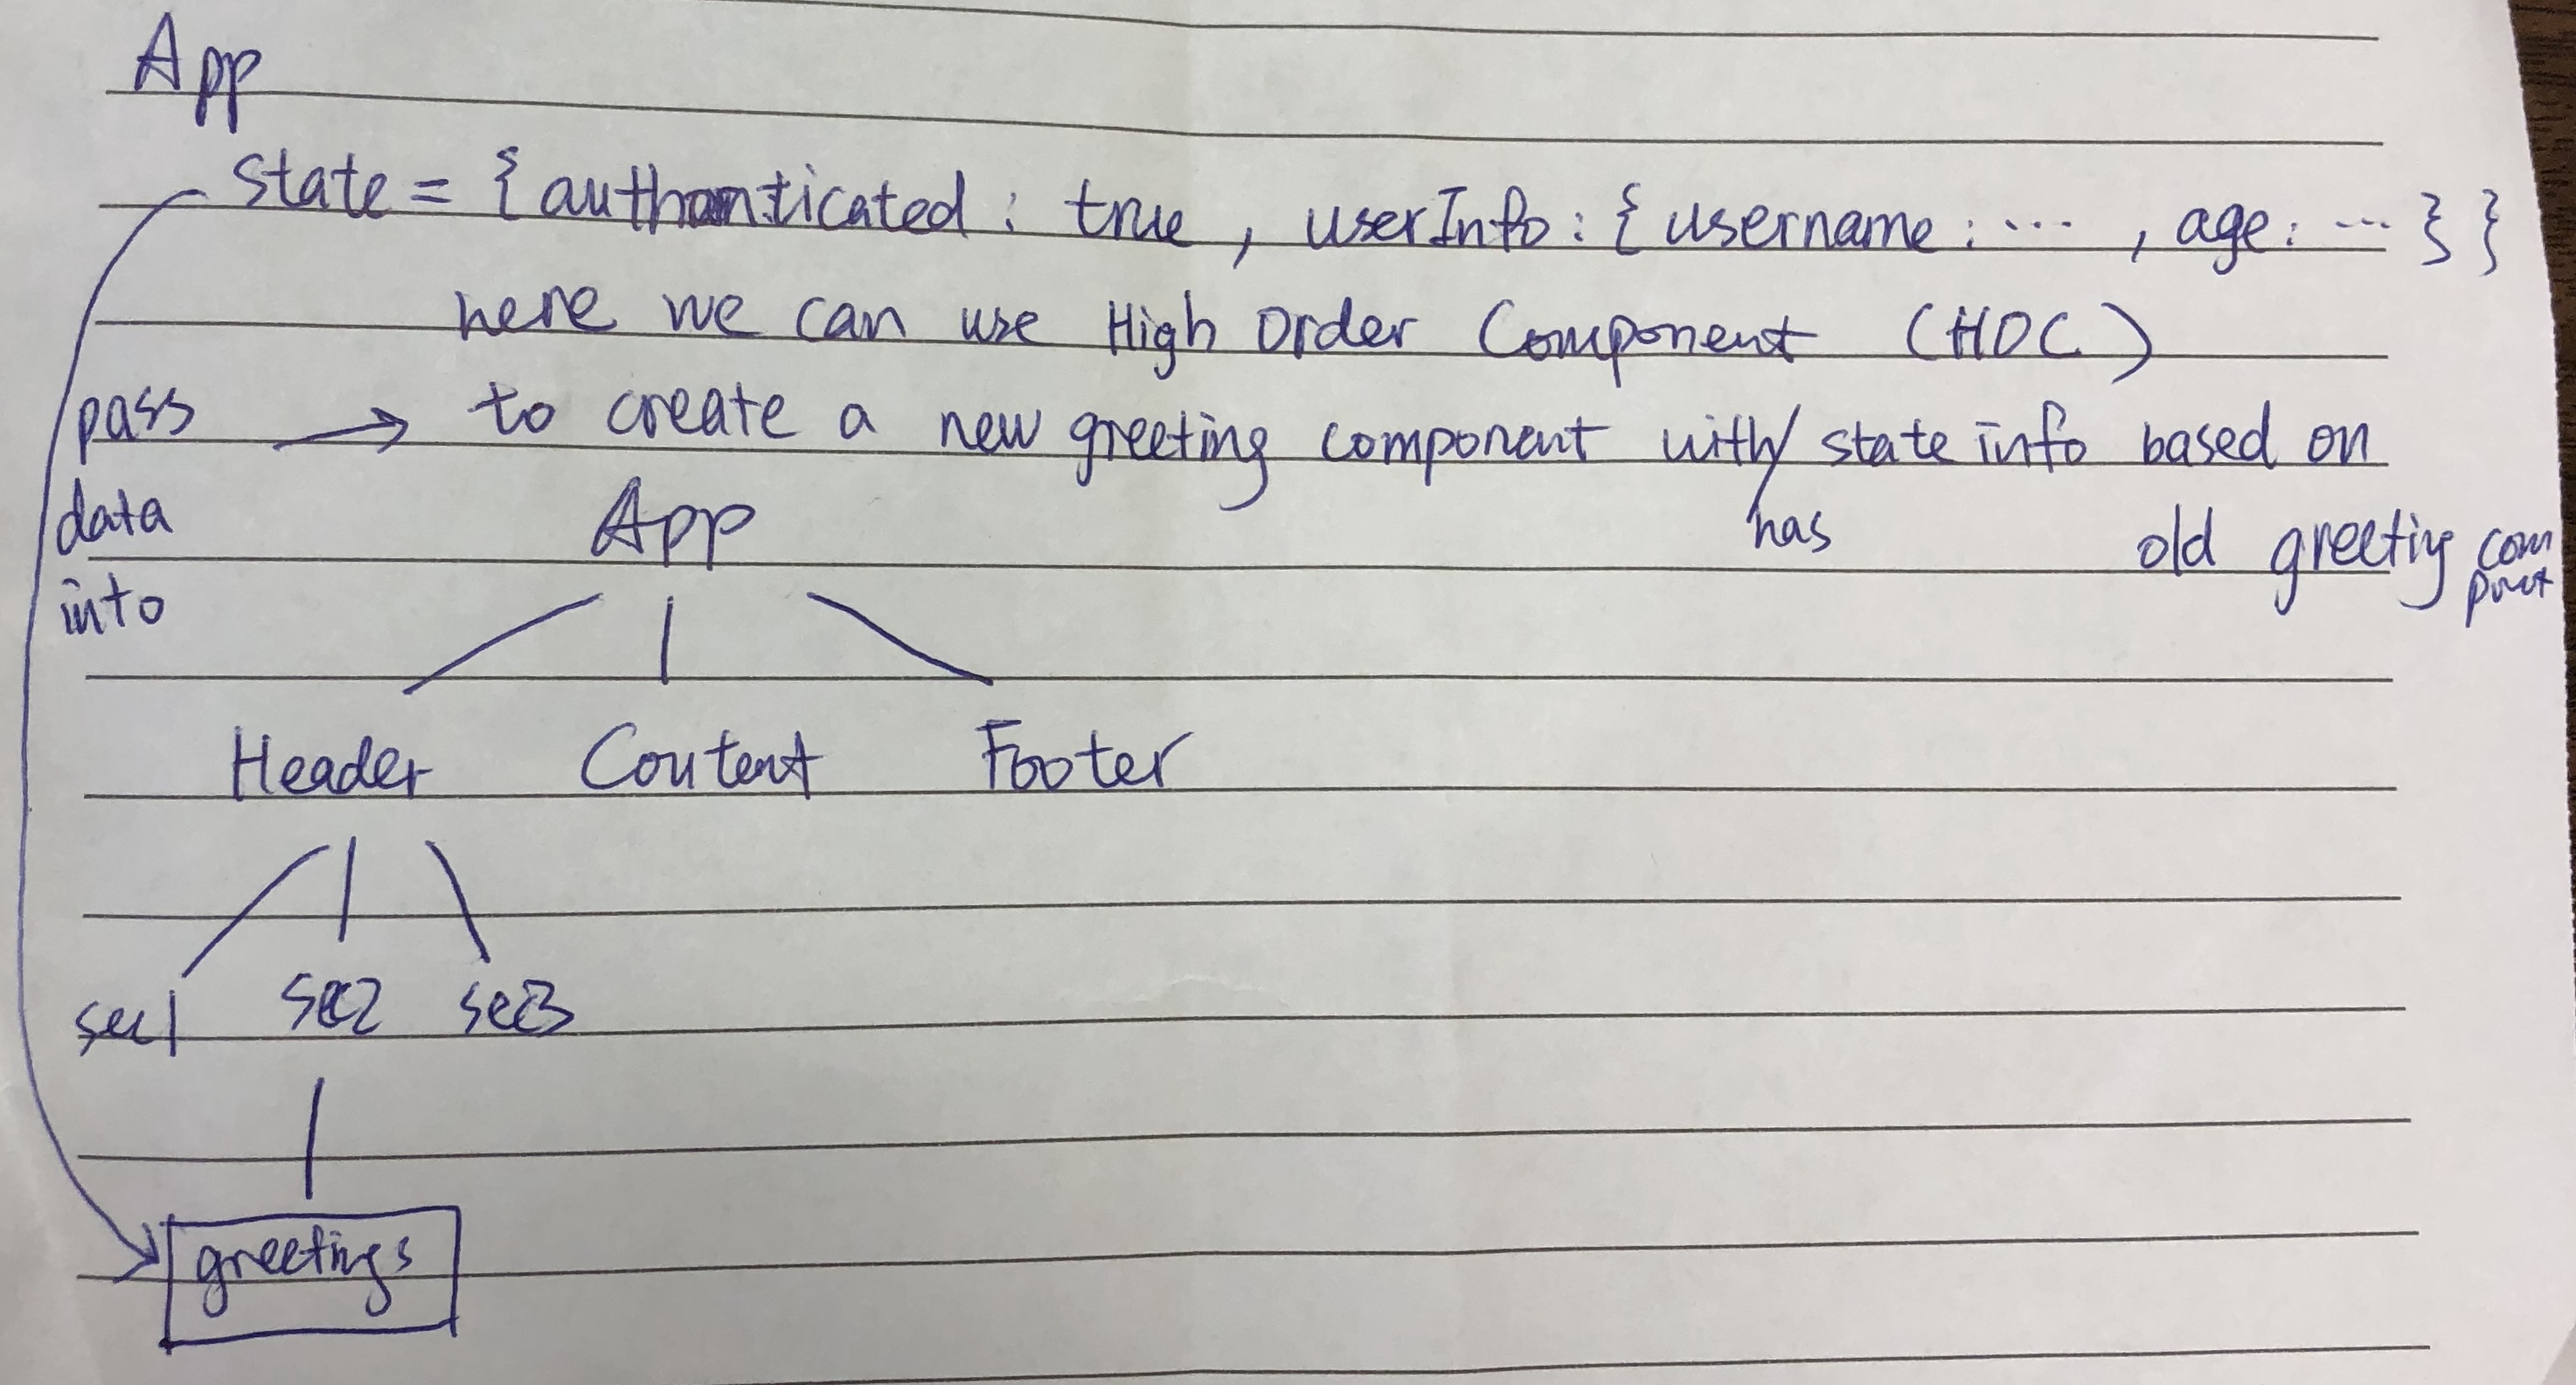 App
state = {authanticated : true , userInfo : { username : ... , age : ... } }
here we can use High Order Component (HOC)
pass → to create a new greeting component with/has state info based on
data
into
old greeting component
App
Header Content Footer
sec1 sec2 sec3
greetings